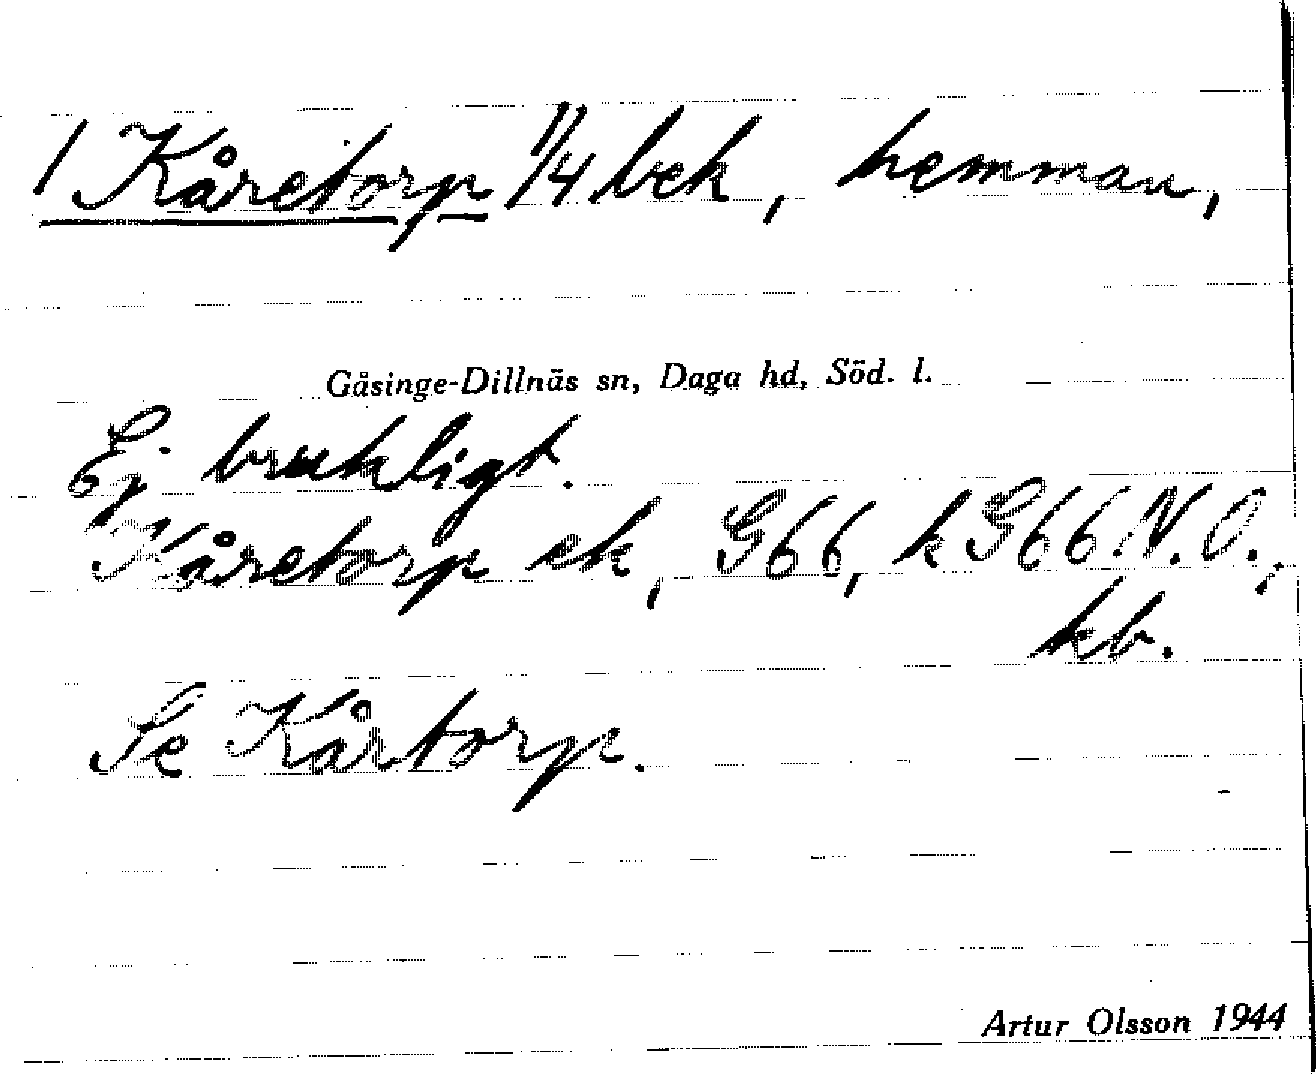 / Kåretorp 1/4 bek, hemman,
Gåsinge-Dillnäs sn, Daga hd, Söd. l.
Ej brukligt.
Kåretorp ek, G66, k G66 N.O.,
kb.
Se Kårtorp.
Artur Olsson 1944